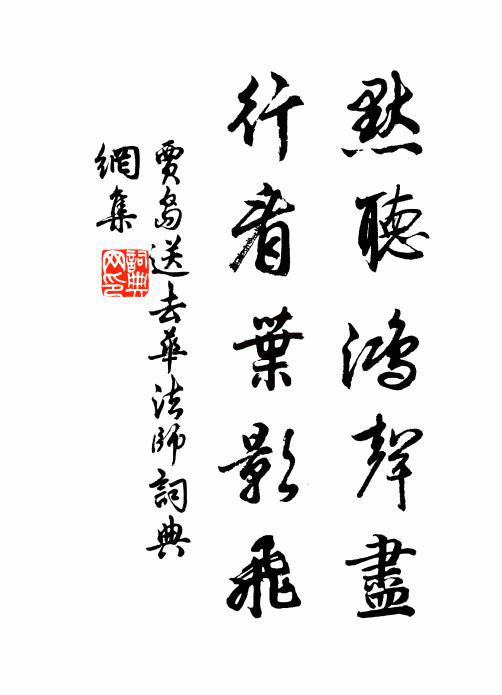 默聽鴻聲盡
行看葉影飛
賈島送去華法師詞典
網集
詞典
网印